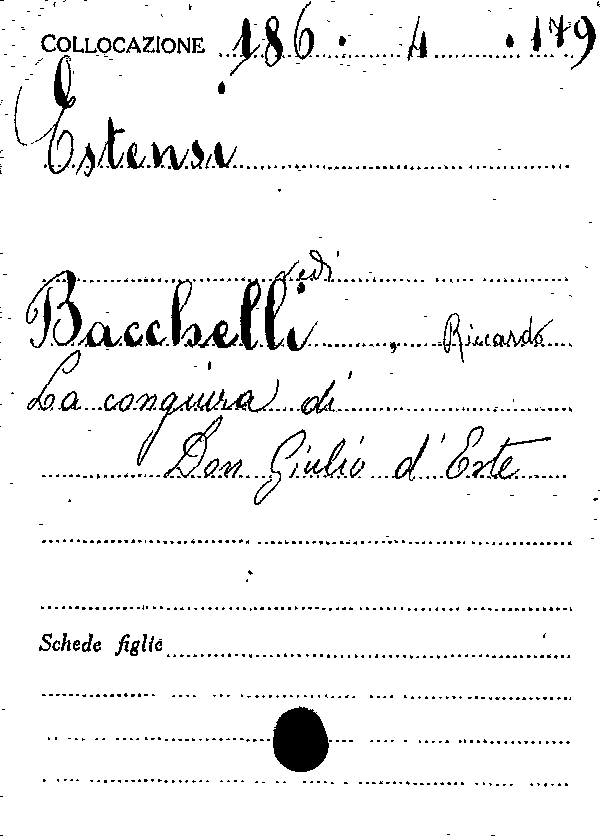 COLLOCAZIONE 186. 4 .179
Estensi
vedi
Bacchelli, Riccardo
La congiura di
Don Giulio d'Este
Schede figlie